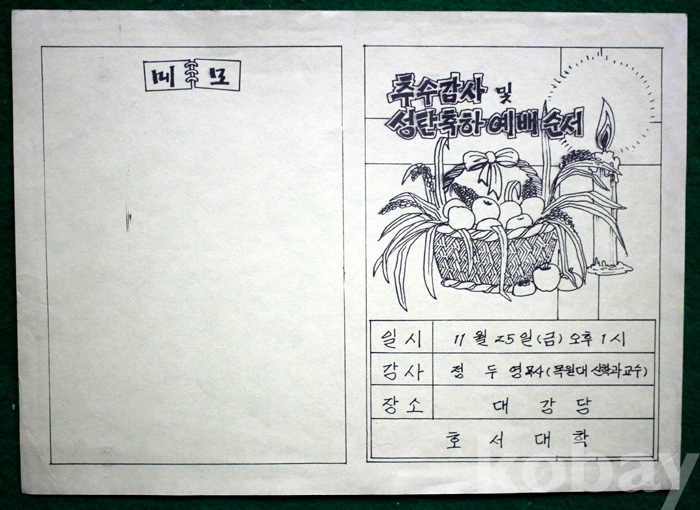 메모
추수감사 및
성탄축하 예배 순서
일시 11월 25일(금) 오후 1시
감사 정두영 목사(목원대 신학과 교수)
장소 대강당
호서대학
kobay